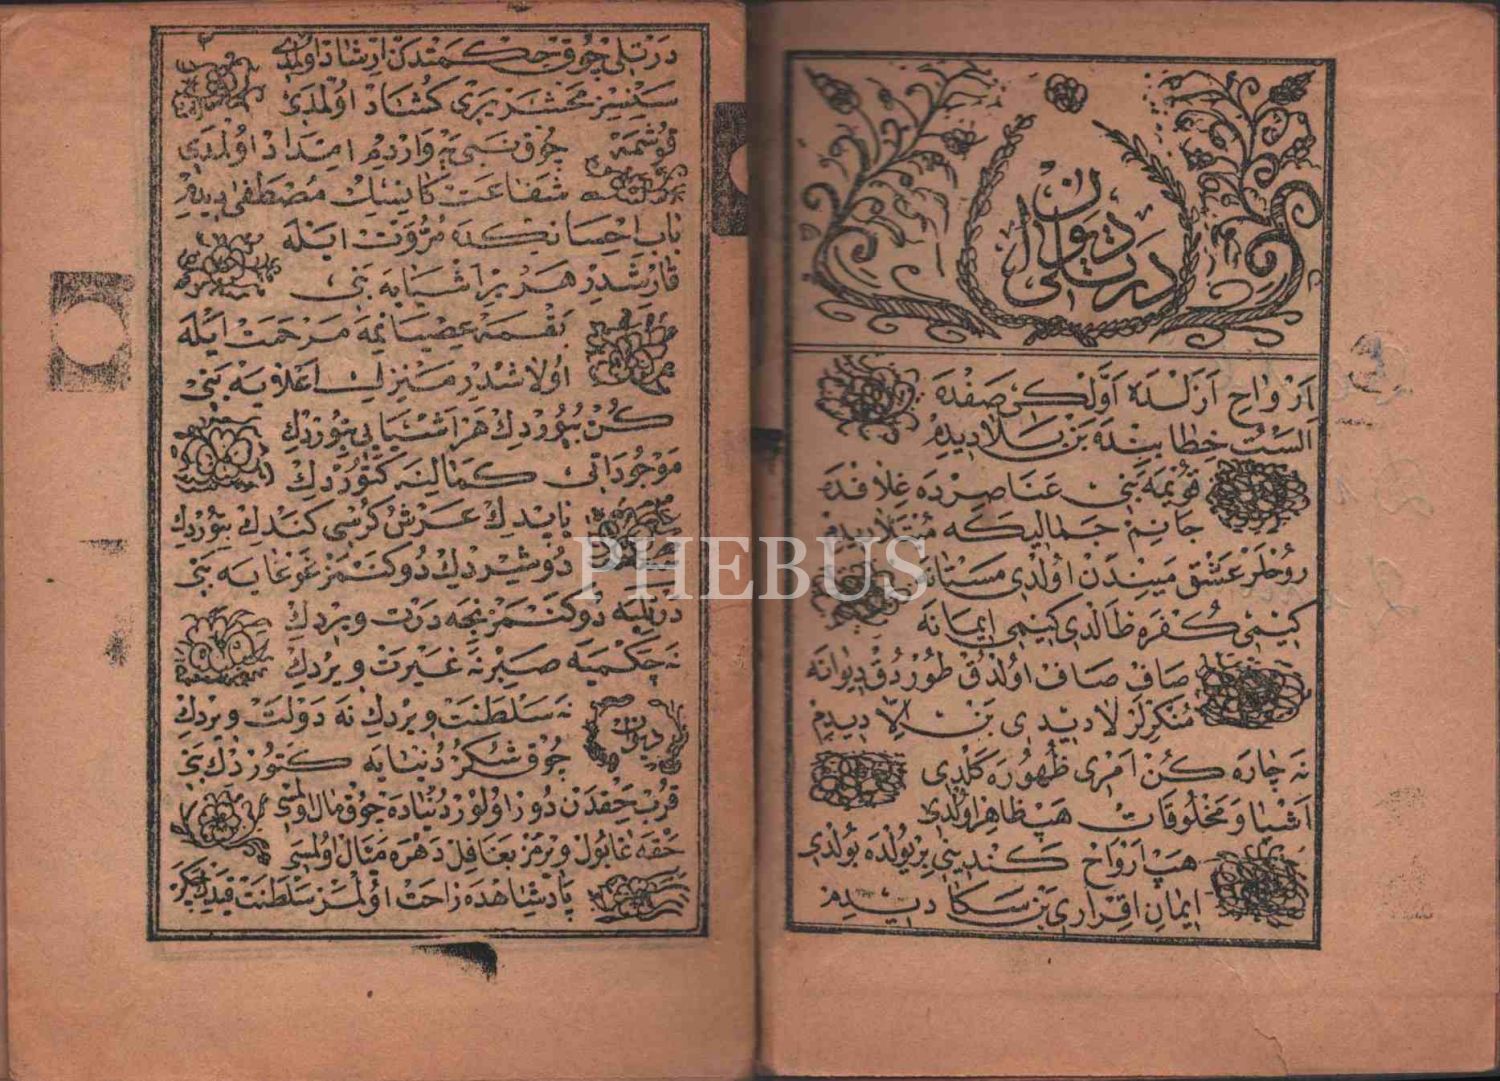 ديوان دردلى
ارواح ازلده اولكى صفده
الست خطابنده بن بلا ديدم
قويمه بنى عناصرده غلافده
جانم جماليكه مبتلا ديدم
روحلر عشق ميندن اولدى مستانه
كيمى كفره طالدى كيمى ايمانه
صاف صاف اولدق طوردق ديوانه
منكرلر لا ديدى بن الا ديدم
نه چاره كن امرى ظهوره كلدى
اشيا و مخلوقات هپ ظاهر اولدى
هپ ارواح كندينى بر يولده بولدى
ايمان اقرارى بن سكا ديدم
٢
دردلى چوق حكمتدن ارشاد اولمدى
سنسز محشر يرى كشاد اولمدى
قوشمه چوق نبى يه واردم امداد اولمدى
شفاعت كانيسك مصطفى ديدم
باب احسانكده مروت ايله
قارشدر هر بر اشيايه بنى
بقمه عصيانمه مرحمت ايله
اولاشدر منزل اعلايه بنى
كن بيوردك هر اشيايى يوردك
موجوداتى كمالينه كتوردك
ياپدك عرش كرسى كندك بيوردك
دوشيردك دوكنمز غوغايه بنى
دردليه دوكنمز نجه درت ويردك
نه چكميه صبر نه غيرت ويردك
ديوان نه سلطنت ويردك نه دولت ويردك
چوق شكر دنيايه كتوردك بنى
قرب حقدن دور اولور دنياده چوق مال اولمسى
حقه غا يول ويرمز بغافل دهره ميال اولمسى
پادشاهده راحت اولمز سلطنت قيدن چكر
PHEBUS